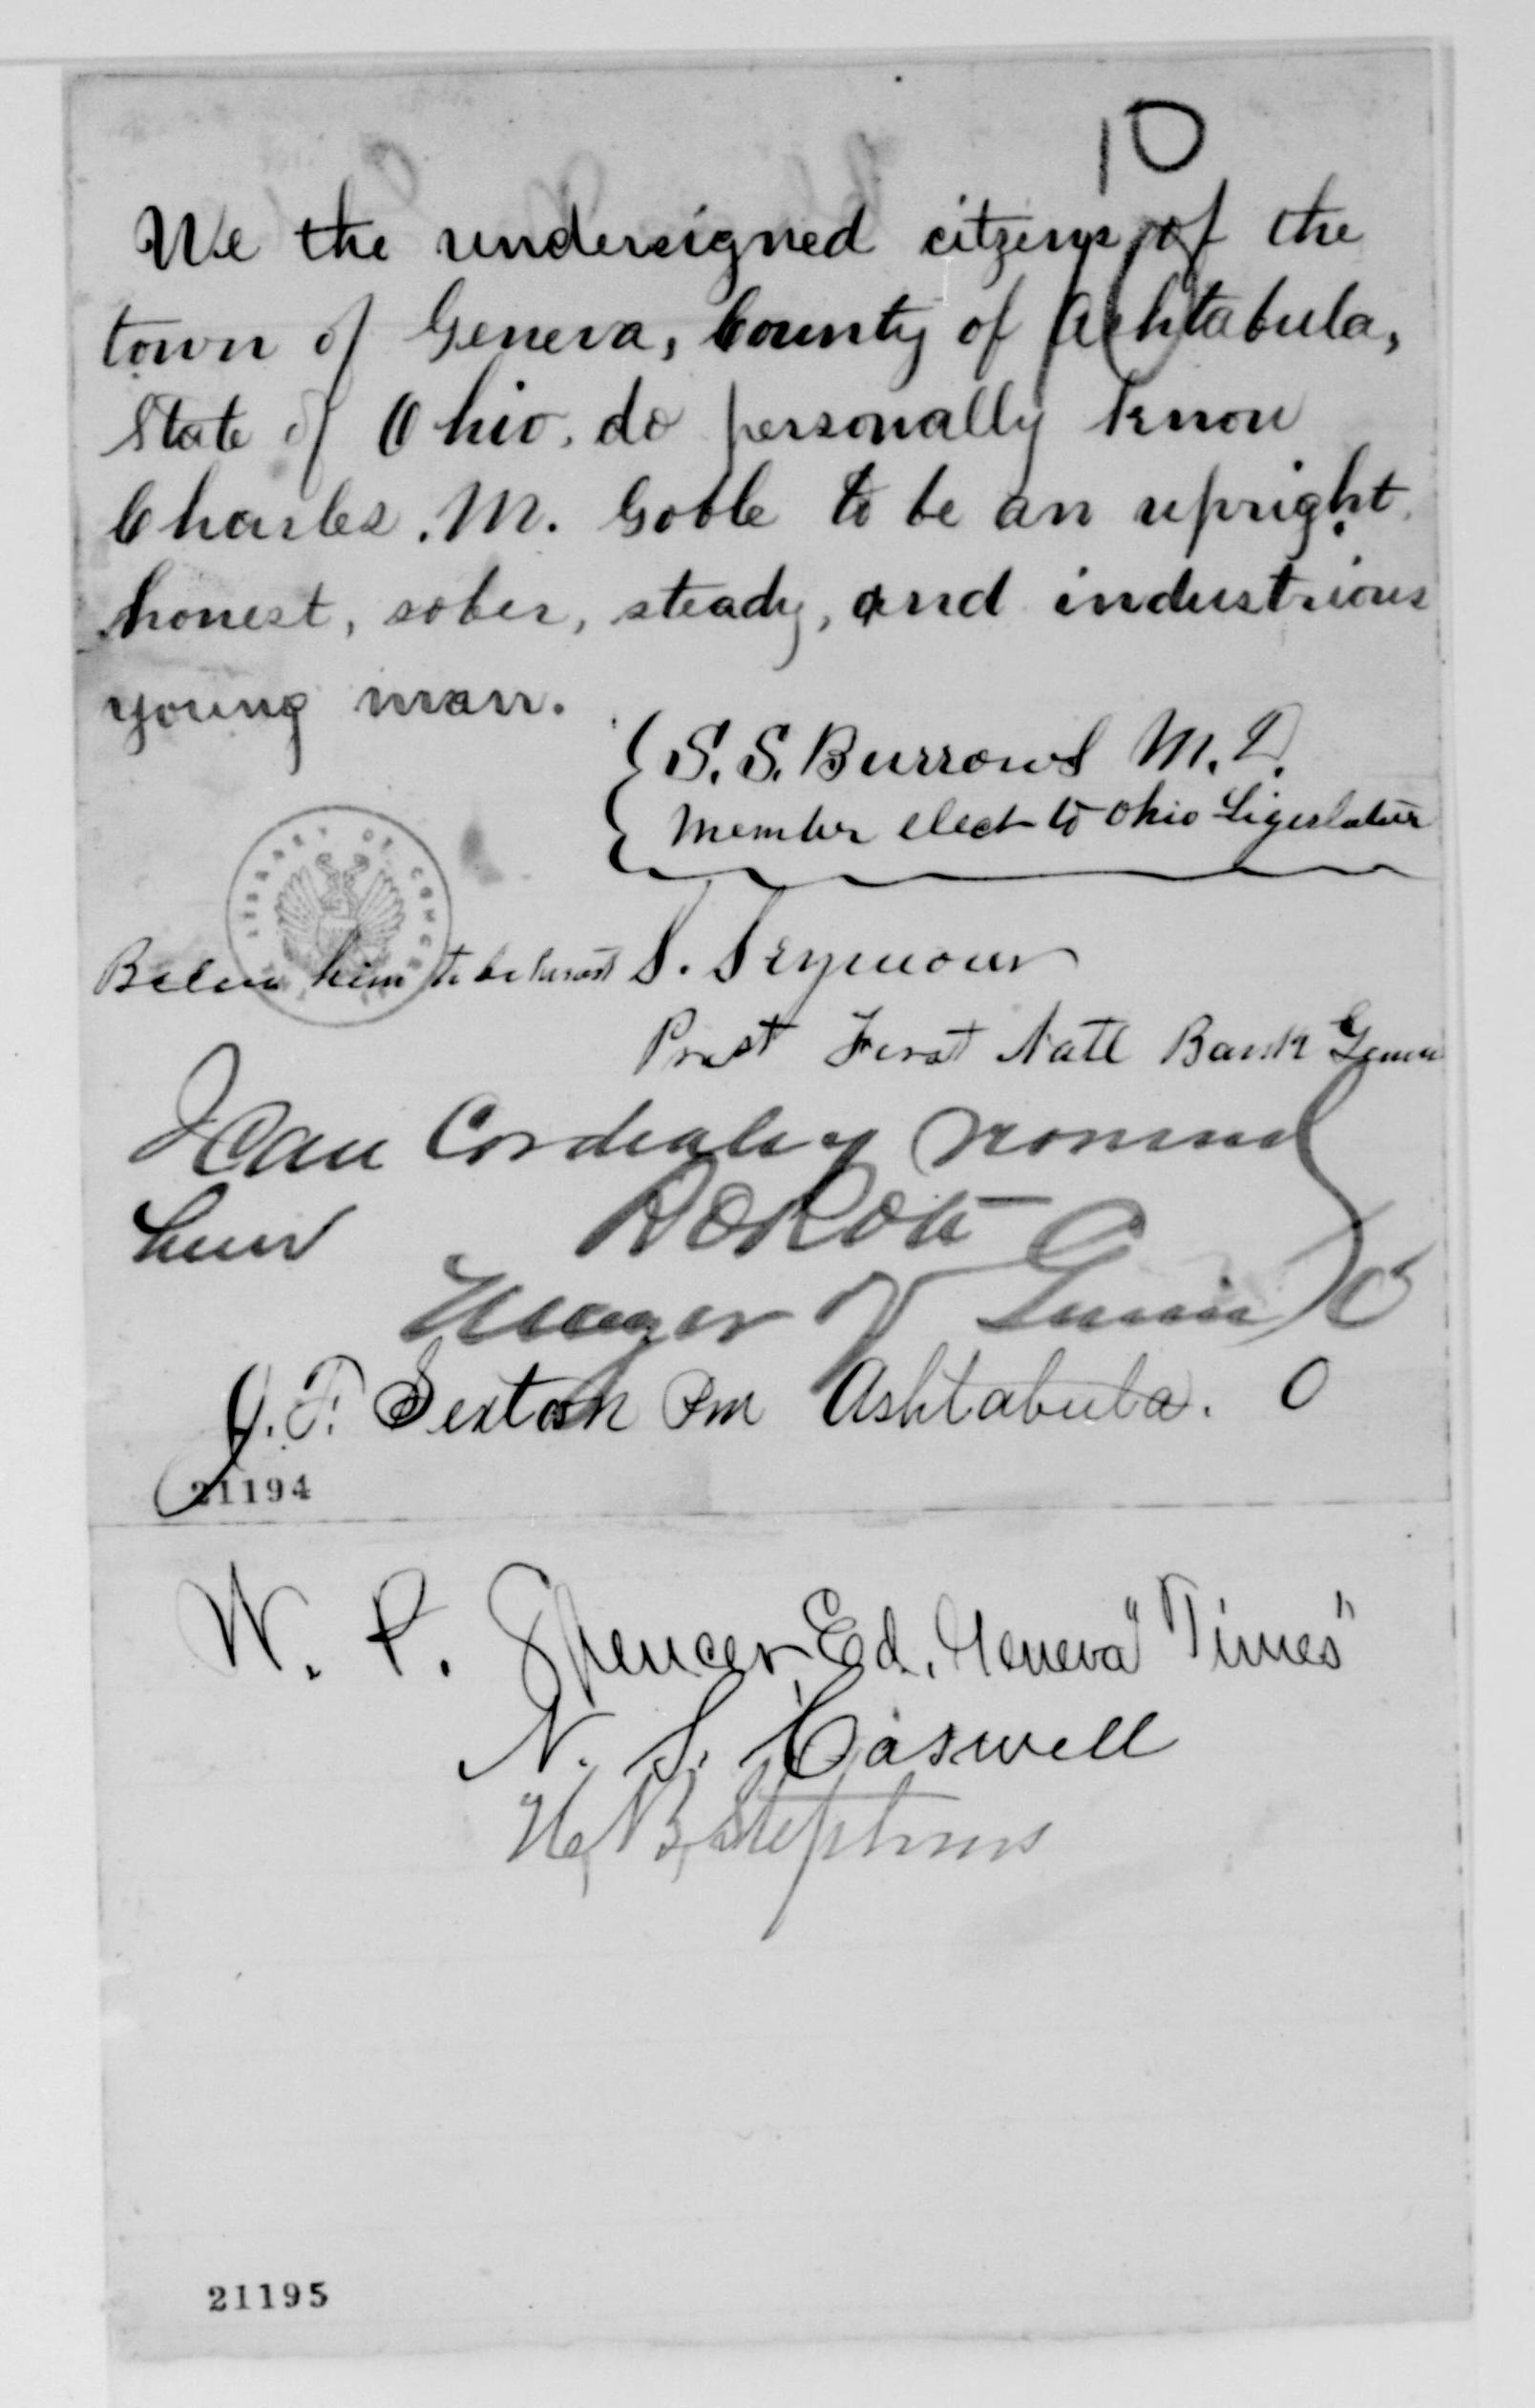 10
We the undersigned citzens of the
town of Geneva, County of Ashtabula,
State of Ohio, do personally know
Charles. M. Goble to be an upright
honest, sober, steady, and industrious
young man.
S. S. Burrows M. D.
Member elect to Ohio Ligeslature
him to be honest S. Seymour
Prest First Natl Bank Geneva
I Can Cordialy
him
Mayor of Geneva O
J. F. Sexton Pm Ashtabula. O
21194
W. P. Spencer, Ed. Geneva "Times"
N. S. Caswell
H. B. Stephens
21195
LIBRARY OF CONGRESS